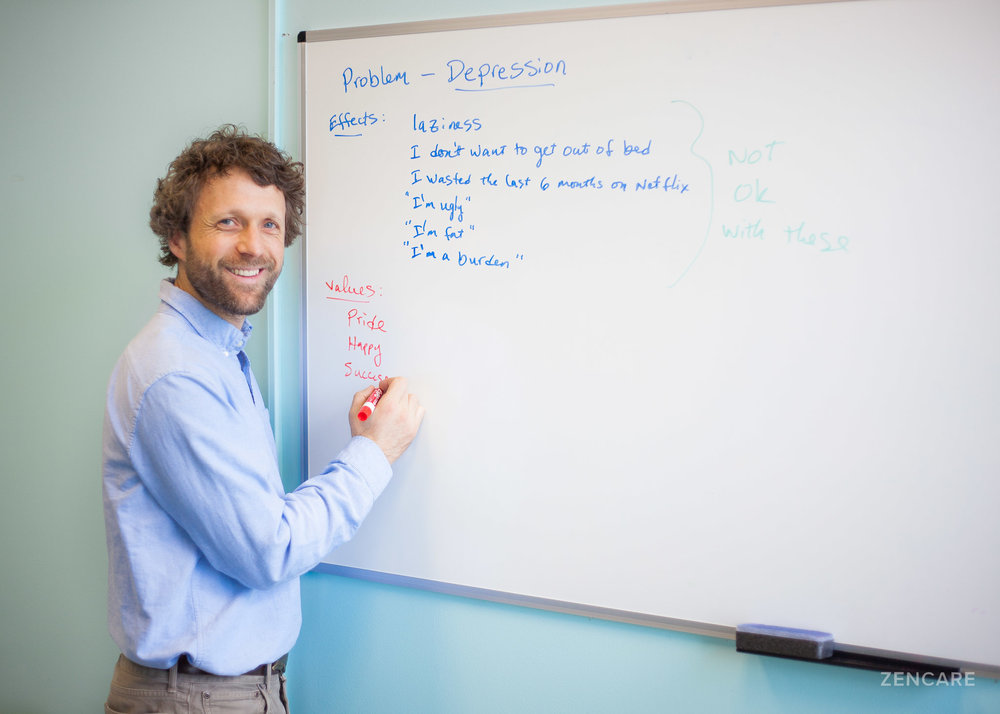 Problem - Depression
Effects: laziness
I don't want to get out of bed
I wasted the last 6 months on Netflix
"I'm ugly"
"I'm fat"
"I'm a burden"
Not
Ok
with these
Values:
Pride
Happy
Success
ZENCARE